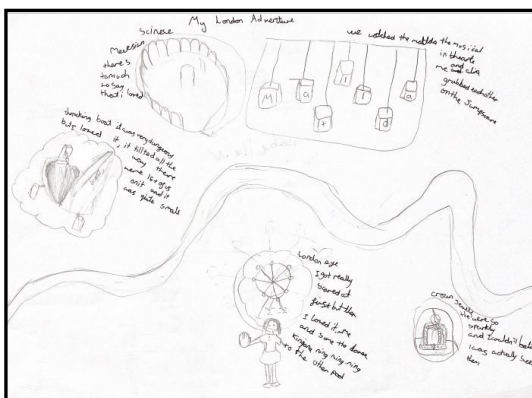 My London Adventure
Scinece
Meuseian
there's
to much
to say
that i loved
we watched the matilda the musical
in thearte
and
me and
grabbed each other
on the Jumpscare
M a t i l d a
it was very dangerous
but i loved it, it tillted all the
way there
were 16 of us
on it and it
was quite small
London eye
I got really
scared at
first but then
I loved it, me
and same the dance
ring ring ring
to the other pod
crown jewels
she were so
sparkly
and I couldn't belie
I was actually see
them